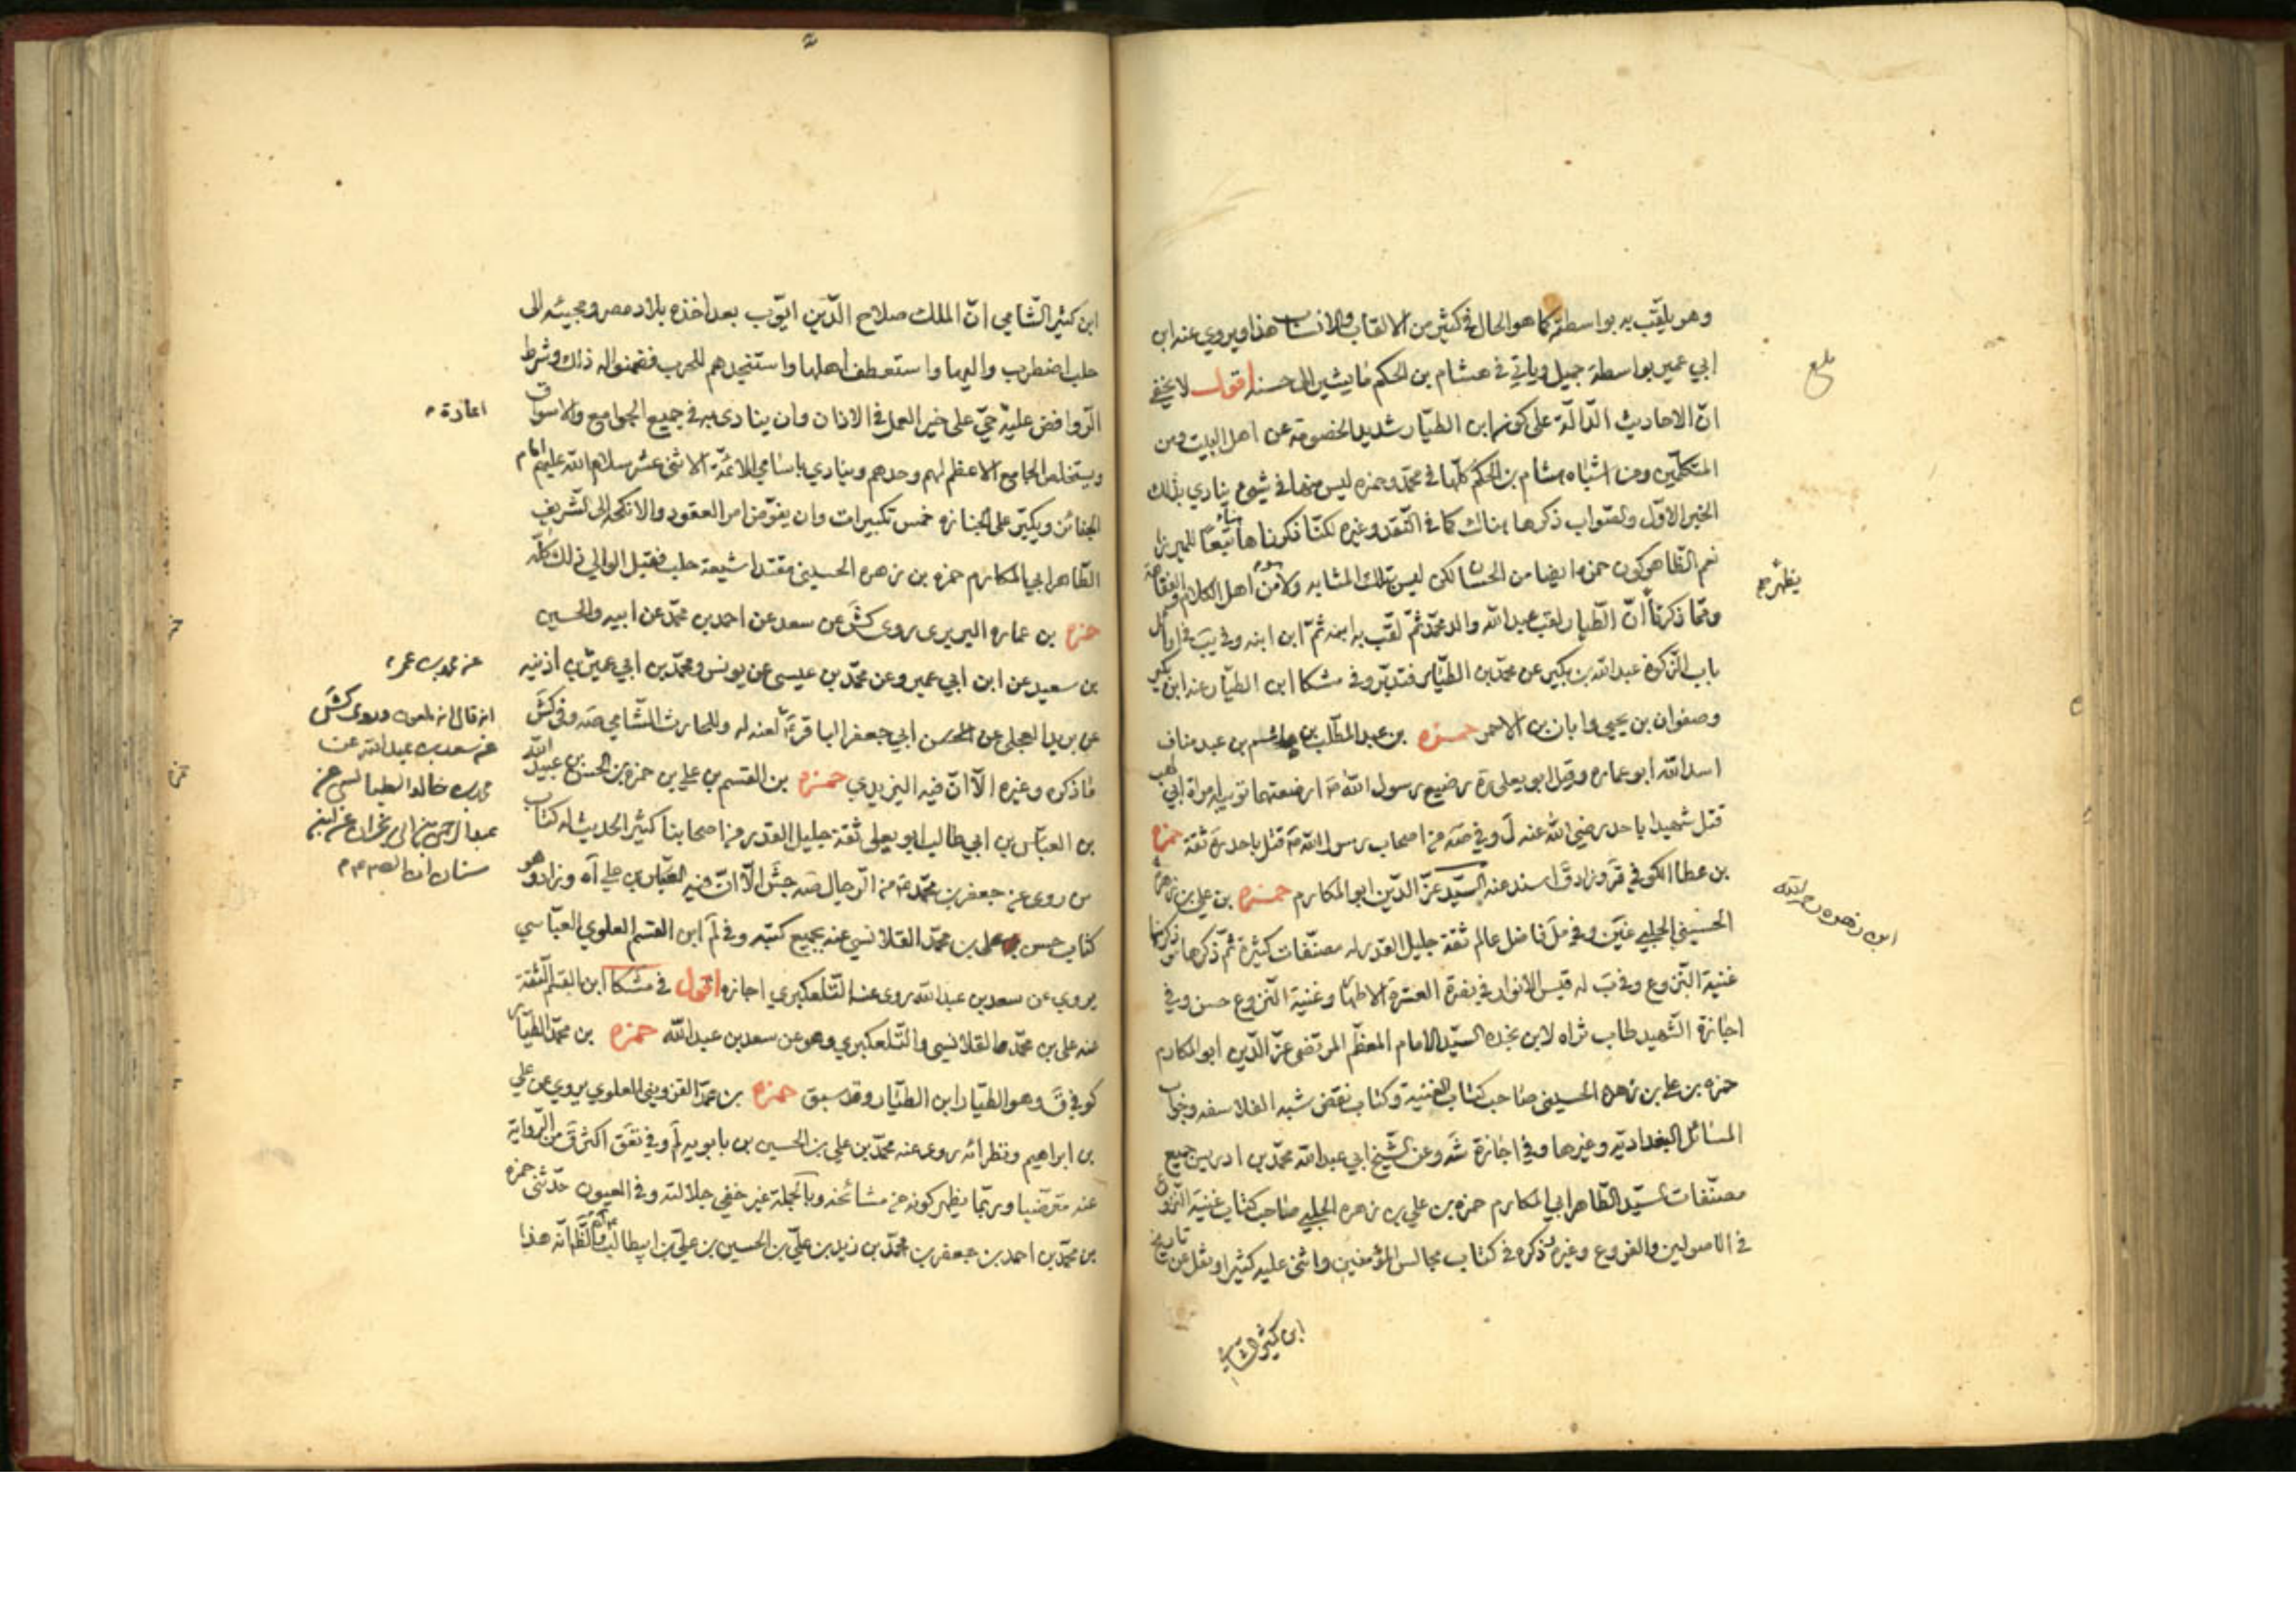 وهو يلقّب به بواسطته كما هو الحال في كثير من الالقاب والانساب هذا ويروي عنه ابن
ابي عمير بواسطة جميل وياتي في هشام بن الحكم ما يشير الى حسنه اقول لا يخفى
انّ الاحاديث الدّالّة على كونه ابن الطيّار شديد الخصومة عن اهل البيت ومن
المتكلّمين ومن اشباه هشام بن الحكم كلّها في محمّد وحمزه ليس منها في شيء ينادي بذلك
الخبر الاوّل والصّواب ذكرها هناك كما في النّقد وغيره لكنّا ذكرناها تبعًا للميرزا
نعم الظّاهر كون حمزه ايضا من الحسان لكن ليس بتلك المشابه ولا من اهل الكلام
وممّا ذكرنا انّ الطّيار لقب عبد الله والد محمّد ثمّ لقّب به ابنه ثمّ ابن ابنه وفي يب في اوائل
باب الزّكوة عبد الله بن بكير عن محمّد بن الطيّار فتدبّر وفي مشكا ابن الطيّار عنه ابن بكير
وصفوان بن يحيى وابان بن الاحمر حمزه بن عبد المطّلب بن هاشم بن عبد مناف
اسد الله ابو عماره وقيل ابو يعلى رة رضيع رسول الله ص ارضعتهما ثويبه امراة ابي لهب
قتل شهيدا باحد رضي الله عنه ل وفي صه من اصحاب رسول الله ص قتل باحد رة ثقة حمزه
بن عطا الكوفي قر وزاد ق اسند عنه السيّد عزّ الدّين ابو المكارم حمزه بن علي بن زهرة
الحسيني الحلبي وفي مل فاضل عالم ثقة جليل القدر له مصنّفات كثيرة ثمّ ذكرها
غنية النّزوع وفي ب له قبس الانوار في نصرة العترة الاطهار وغنية النّزوع حسن وفي
اجازة الشّهيد طاب ثراه لابن نجده السيّد الامام المعظّم المرتضى عزّ الدّين ابو المكارم
حمزه بن علي بن زهره الحسيني صاحب كتاب الغنية وكتاب نقض شبه الفلاسفه وجواب
المسائل البغداديّه وغيرها وفي اجازة شه وعن الشّيخ ابي عبد الله محمّد بن ادريس جميع
مصنّفات السيّد الطّاهر ابي المكارم حمزه بن علي بن زهره الحلبي صاحب كتاب غنية النّزوع
في الاصولين والفروع وغيره ذكره في كتاب مجالس المؤمنين واثنى عليه كثيرا ونقل عن تاريخ
ابن كثير الشامي
بلغ
يظهر
ابن زهره رحمه الله
ابن كثير الشّامي انّ الملك صلاح الدّين ايّوب بعد اخذه بلاد مصر ومجيئه الى
حلب اضطرب واليها واستعطف اهلها واستنجدهم للحرب فضمنوا له ذلك وشرط
الرّوافض عليه حيّ على خير العمل في الاذان وان ينادى به في جميع الجوامع والاسواق
ويستخلص الجامع الاعظم لهم وحدهم وينادي باسامي الائمّة الاثنى عشر سلام الله عليهم امام
الجنائز ويكبّر على الجنازه خمس تكبيرات وان يفوّض امر العقود والانكحه الى الشّريف
الطّاهر ابي المكارم حمزه بن زهره الحسيني مقتدا شيعة حلب فقبل الوالي ذلك كلّه
حمزه بن عماره البربري روى كش عن سعد عن احمد بن محمّد عن ابيه والحسين
بن سعيد عن ابن ابي عمير وعن محمّد بن عيسى عن يونس ومحمّد بن ابي عمير بن اذينه
عن بريد العجلي عن ابي جعفر الباقر لعنه له وللحارث الشّامي صه وفي كش
ما ذكره وغيره الّا انّ فيه اليزيدي حمزه بن القسم بن علي بن حمزه بن الحسن بن عبيد الله
بن العبّاس بن ابي طالب ابو يعلى ثقة جليل القدر من اصحابنا كثير الحديث له كتاب
من روى عن جعفر بن محمّد ع من الرّجال صه جش الّا انّ فيه العبّاس بن علي اه وزاد وهو
كتاب حسن علي بن محمّد القلانسي عنه بجميع كتبه وفي لم ابن القسم العلوي العبّاسي
يروي عن سعد بن عبد الله روى عنه التّلعكبري اجازه اقول في مشكا ابن القسم الثّقة
عنه علي بن محمّد القلانسي والتّلعكبري وهو عن سعد بن عبد الله حمزه بن محمّد الطيّار
كوفي ق وهو الطيّار ابن الطيّار وقد سبق حمزه بن محمّد القزويني العلوي يروي عن علي
بن ابراهيم ونظرائه روى عنه محمّد بن علي بن الحسين بن بابويه لم وفي تعق اكثر ق من الرّواية
عنه مترضّيا وربّما يظهر كونه من مشائخه وبالجملة غير خفي جلالته وفي العيون حدّثني حمزه
بن محمّد بن احمد بن جعفر بن محمّد بن زيد بن عليّ بن الحسين بن عليّ بن ابيطالب والظّ انّه هذا
اعادة
عن محمد بن عمر
انه قال وروى كش
عن سعد بن عبد الله عن
محمد بن خالد الطيالسي عن
عبد الرحمن بن ابي نجران عن ابن
سنان